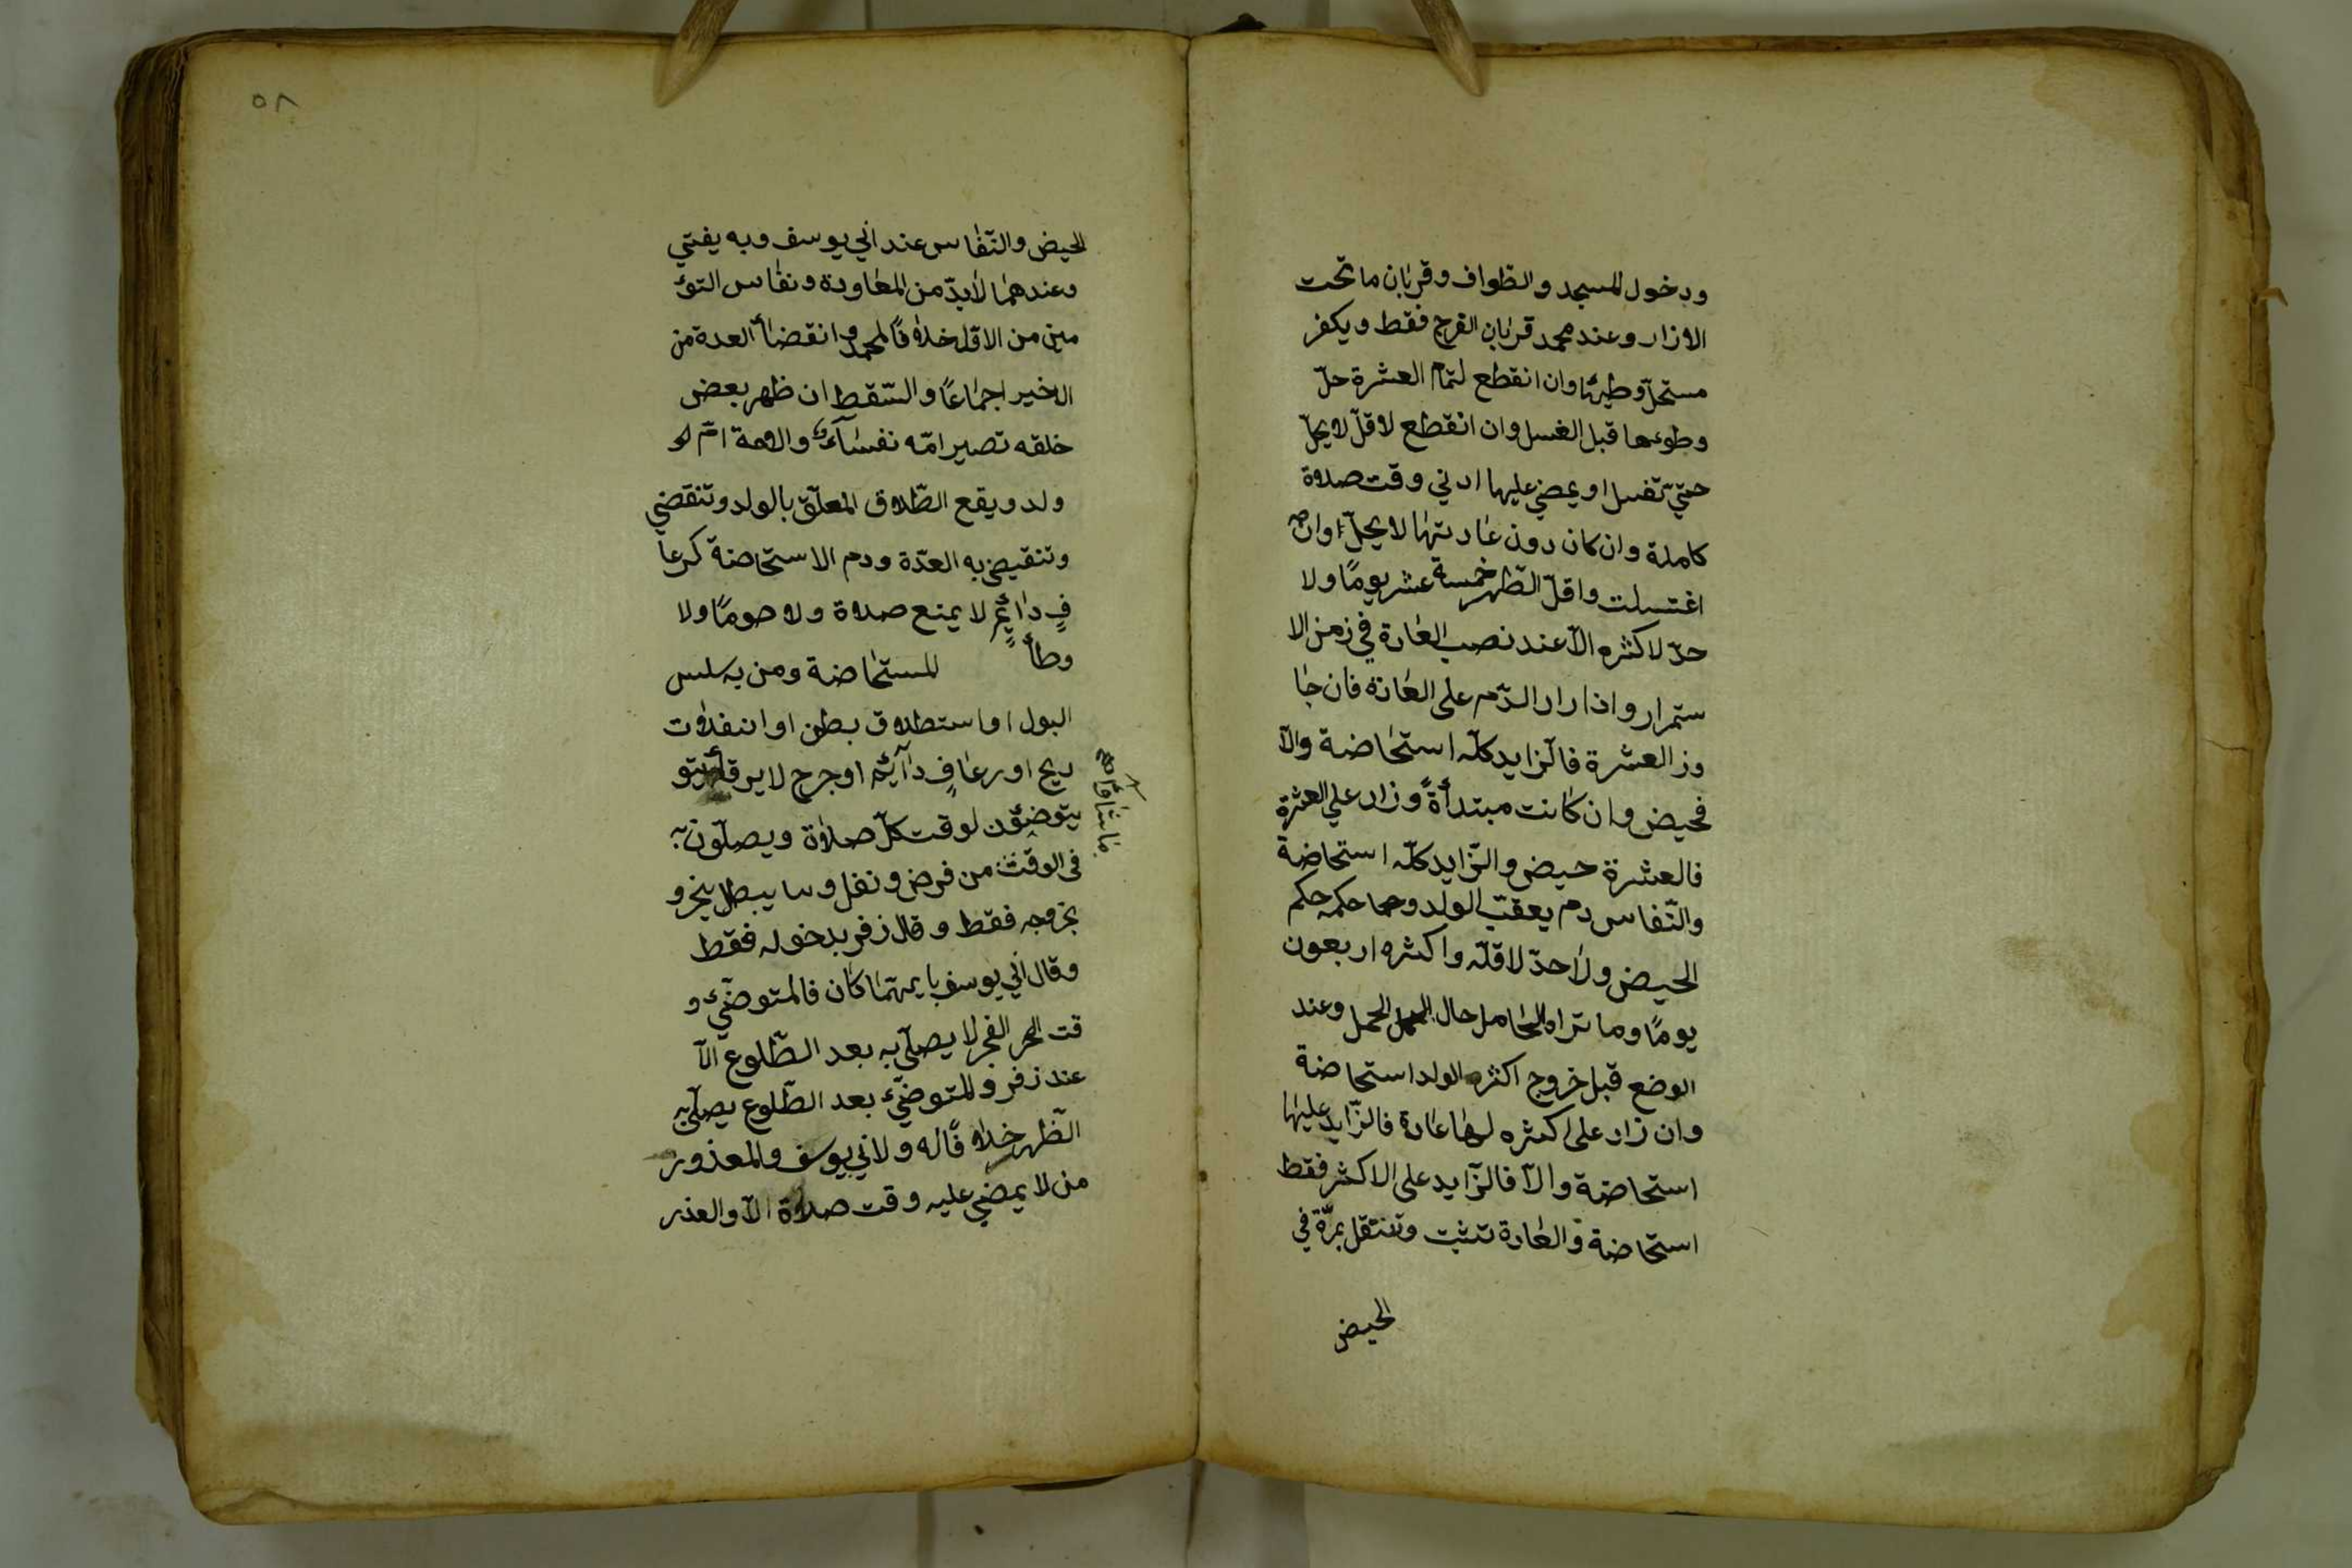 ودخول المسجد والطواف وقربان ما تحت
الازار وعند محمد قربان الفرج فقط ويكفر
مستحلّ وطيئها وان انقطع لتمام العشرة حلّ
وطوءها قبل الغسل وان انقطع لاقلّ لا يحلّ
حتيّ تغسل او يمضي عليها ادني وقت صلاة
كاملة وان كان دون عادتها لا يحلّ وان
اغتسلت واقلّ الطّهر خمسة عشر يومًا ولا
حدّ لاكثره الّا عند نصب العادة في زمن الا
ستمرار واذا زاد الدّم على العادة فان جا
وز العشرة فالزّايد كلّه استحاضة والّا
فحيض وان كانت مبتدأةً وزاد علي العشرة
فالعشرة حيض والزّايد كلّه استحاضة
والنّفاس دم يعقب الولد وحكمه حكم
الحيض ولا حدّ لاقلّه واكثره اربعون
يومًا وما تراه الحامل حال الحمل وعند
الوضع قبل خروج اكثر الولد استحاضة
وان زاد على اكثره لها عادة فالزّايد عليها
استحاضة والّا فالزّايد على الاكثر فقط
استحاضة والعادة تثبت وتنتقل بمرّة في
الحيض
٥٨
الحيض والنّفاس عند ابي يوسف وبه يفتي
وعندهما لا بدّ من المعاودة ونفاس التوء
مين من الاوّل خلافًا لمحمد وانقضأ العدة من
الاخير اجماعًا والسّقط ان ظهر بعض
خلقه تصير امّه نفسآء والامة امّ لو
ولد ويقع الطّلاق المعلّق بالولد وتنقضي
وتنقيضي به العدّة ودم الاستحاضة كرعا
فٍ دائمٍ لا يمنع صلاة ولا صومًا ولا
وطأً المستحاضة ومن به سلس
البول او استطلاق بطن او انفلات
ريح او رعافٍ دآئم او جرح لا يرقأ يتو
يتوضؤن لوقت كلّ صلاة ويصلّون به
فى الوقت من فرض ونفل وما يبطل بخرو
بخروجه فقط وقال زفر بدخوله فقط
وقال ابي يوسف بايهما كان فالمتوضّيء و
قت الفجر لا يصلّي به بعد الطّلوع الّا
عند زفر والمتوضّيء بعد الطّلوع يصلّي به
الظّهر خلافًا له ولابي يوسف والمعذور
من لا يمضي عليه وقت صلاة الّا والعذر